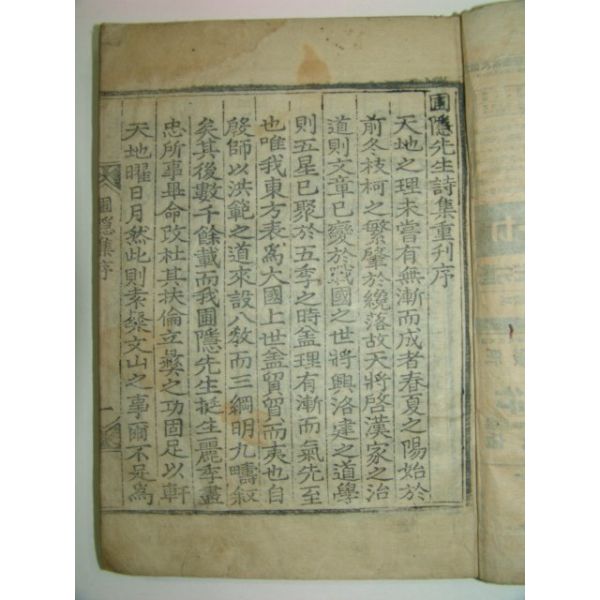 圃隱先生詩集重刊序
天地之理未嘗有無漸而成者春夏之陽始於
前冬枝柯之繁肇於纔落故天將啓漢家之治
道則文章已變於戰國之世將興洛建之道學
則五星已聚於五季之時盖理有漸而氣先至
也唯我東方表爲大國上世盖貿貿而夷也自
殷師以洪範之道來設八敎而三綱明九疇叙
矣其後數千餘載而我圃隱先生挺生麗季盡
忠所事畢命改社其扶倫立彝之功固足以軒
天地曜日月然此則素槩文山之事爾不足爲
圃隱集序
一